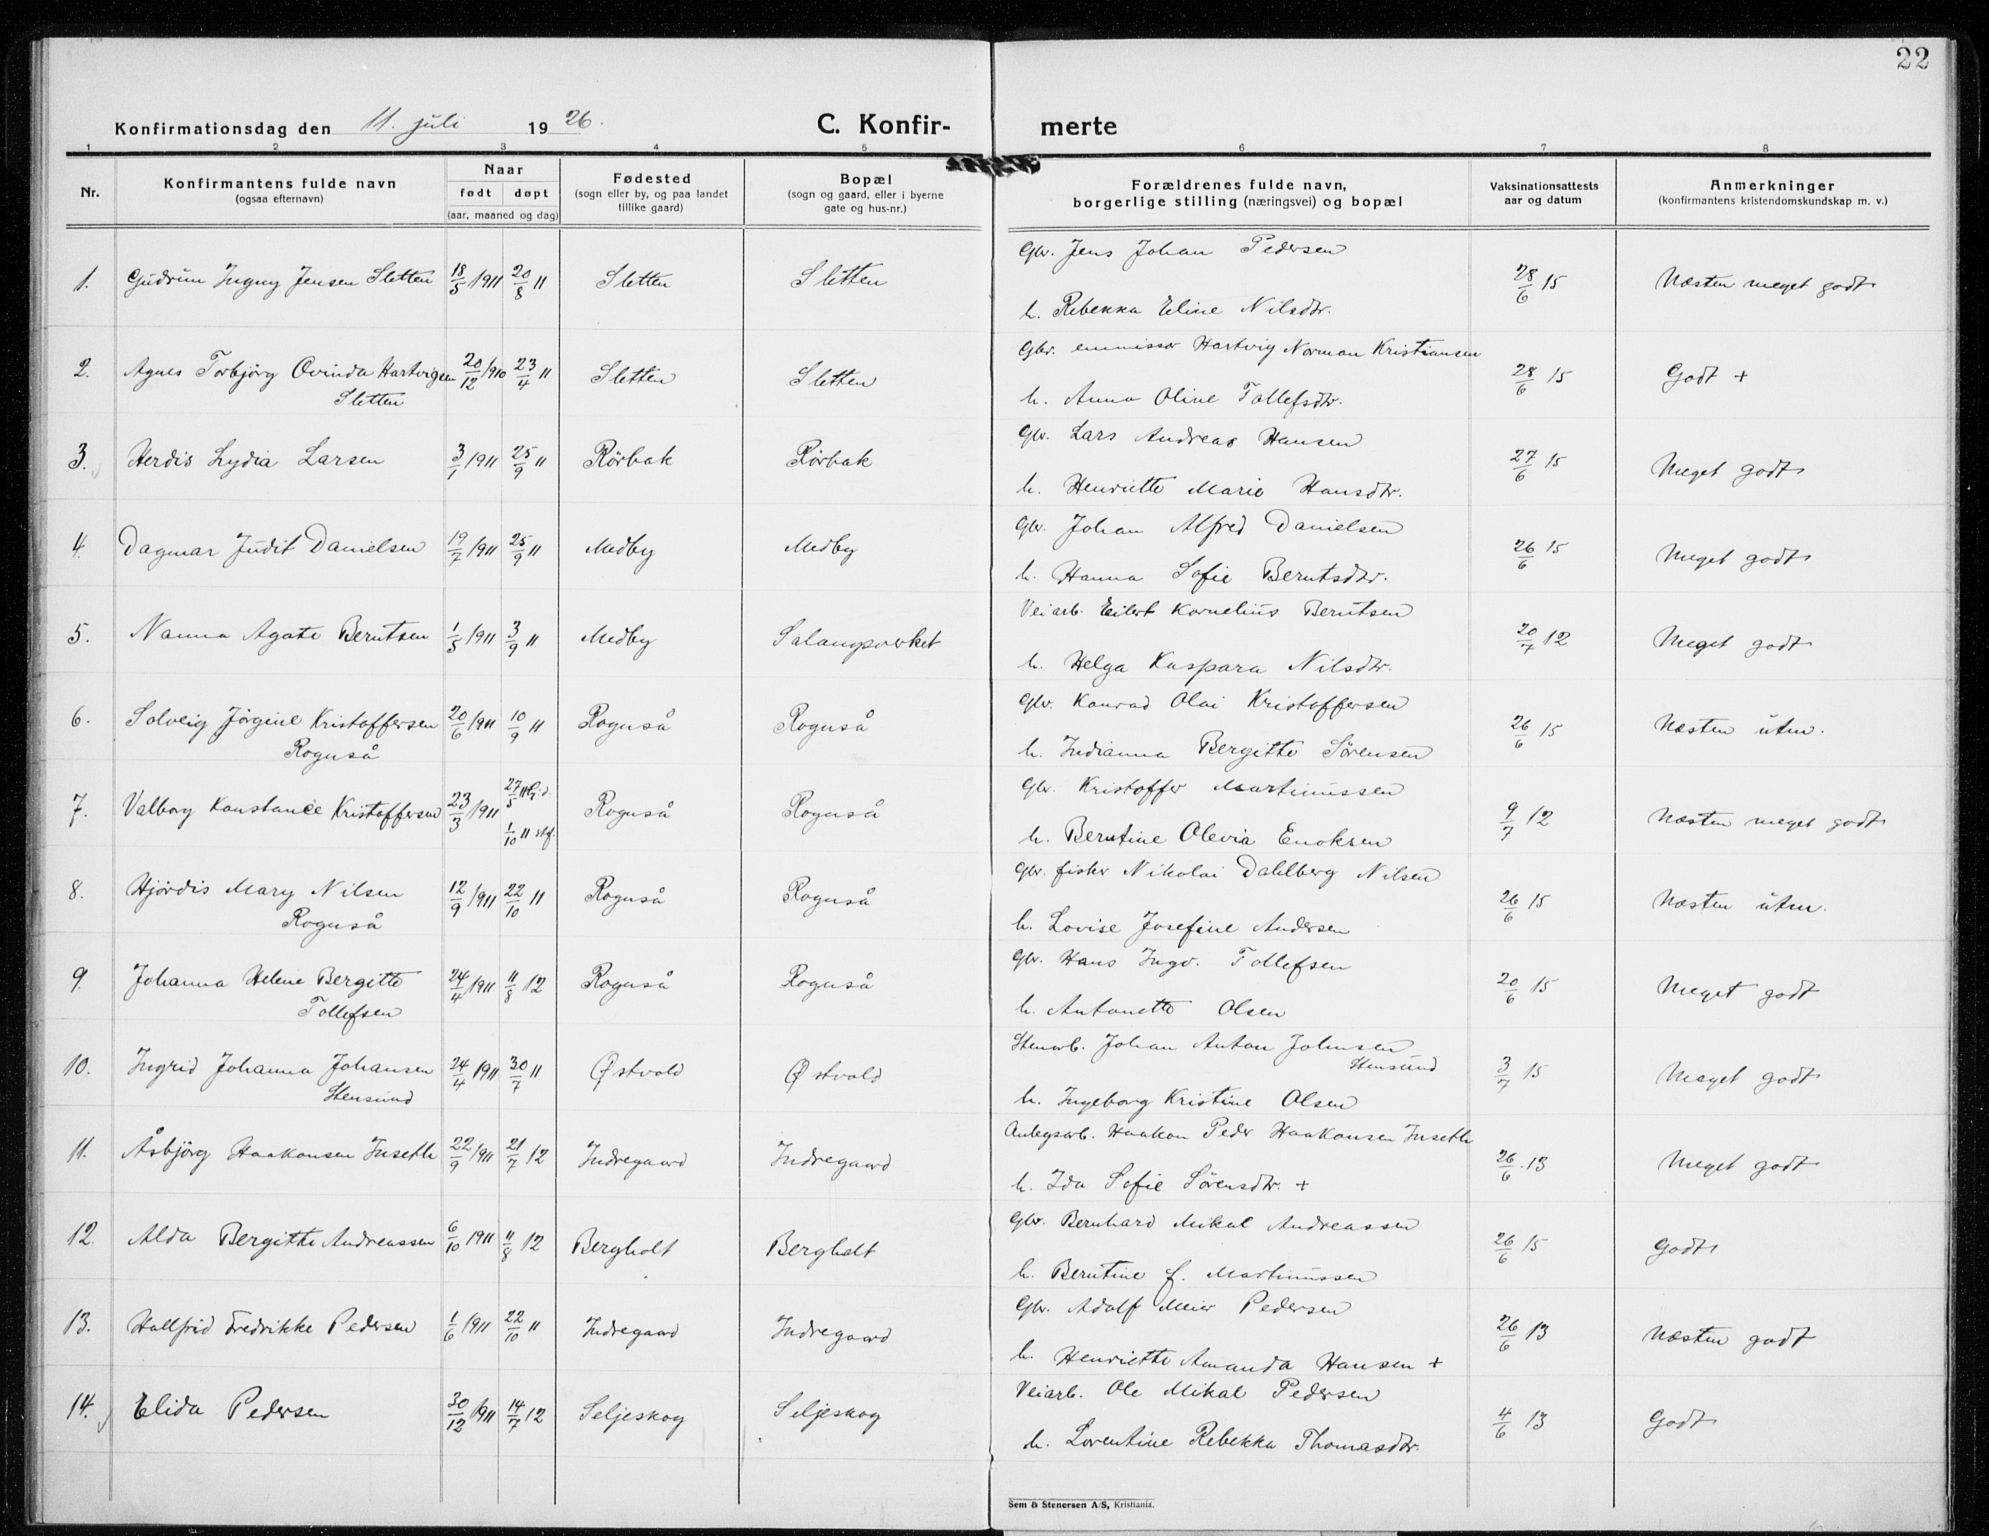 22
Konfirmationsdag den 11. juli 1926. C. Konfirmerte
1 2 3 4 5 6 7 8
Nr. Konfirmantens fulde navn (ogsaa efternavn) Naar født døpt (aar, maaned og dag) Fødested (sogn eller by, og paa landet tillike gaard) Bopæl (sogn og gaard, eller i byerne gate og hus-nr.) Forældrenes fulde navn, borgerlige stilling (næringsvei) og bopæl Vaksinationsattests aar og datum Anmerkninger (konfirmantens kristendomskundskap m. v.)
Gbr. Jens Johan Pedersen
1. Gudrun Jugny Jensen Sletten 18/5 1911 20/8 11 Sletten Sletten 28/6 15 Næsten meget godt
h. Rebekka Eline Nilsdtr.
Gbr. emmissær Hartvig Norman Kristiansen
2. Agnes Torbjörg Ovinda Hartvigsen 20/12 1910 23/4 11 Sletten Sletten 28/6 15 Godt +
Sletten h. Anna Oline Tollefsdtr.
Gbr. Lars Andreas Hansen
3. Herdis Lydia Larsen 3/1 1911 25/9 11 Rörbak Rörbak 27/6 15 Meget godt
h. Henriette Marie Hansdtr.
Gbr. Johan Alfred Danielsen
4. Dagmar Judit Danielsen 19/7 1911 25/9 11 Medby Medby 26/6 15 Meget godt
h. Hanna Sofie Berntsdtr.
Veiarb. Eilert Kornelius Berntsen
5. Nanna Agate Berntsen 1/5 1911 3/9 11 Medby Salangsverket 20/7 12 Meget godt
h. Helga Kaspara Nilsdtr.
Gbr. Konrad Olai Kristoffersen
6. Solveig Jörgine Kristoffersen 20/6 1911 10/9 11 Rognså Rognså 26/6 15 Næsten utm.
Rognså h. Indianna Bergitte Sörensen
Gbr. Kristoffer Martinussen
7. Valborg Konstance Kristoffersen 23/3 1911 27/5 11 hj.d. 1/10 11 stf. Rognså Rognså 9/7 12 Næsten meget godt
h. Berntine Olevia Enoksen
Gbr. fisker Nikolai Dahlberg Nilsen
8. Hjördis Mary Nilsen 12/9 1911 22/10 11 Rognså Rognså 26/6 15 Næsten utm.
Rognså h. Lovise Josefine Andersen
Gbr. Hans Ingv. Tollefsen
9. Johanna Helene Bergitte 24/4 1911 11/8 12 Rognså Rognså 20/6 15 Meget godt
Tollefsen h. Antonette Olsen
Stenarb. Johan Anton Johnsen
Stensund
10. Ingrid Johanna Johansen 24/4 1911 30/7 11 Østvold Østvold 3/7 15 Meget godt
Stensund h. Ingeborg Kristine Olsen
Anlegsarb. Haakon Peder Haakonsen Inseth
11. Åsbjörg Haakonsen Inseth 22/9 1911 21/7 12 Indregaard Indregaard 26/6 13 Meget godt
h. Ida Sofie Sörensdtr. +
Gbr. Bernhard Mikal Andreassen
12. Alda Bergitte Andreassen 6/10 1911 11/8 12 Bergholt Bergholt 26/6 15 Godt
h. Berntine f. Martinussen
Gbr. Adolf Meier Pedersen
13. Hallfrid Fredrikke Pedersen 1/6 1911 22/10 11 Indregaard Indregaard 26/6 13 Næsten godt
h. Henriette Amanda Hansen +
Veiarb. Ole Mikal Pedersen
14. Elida Pedersen 30/12 1911 14/7 12 Seljeskog Seljeskog 4/6 13 Godt
h. Lorentine Rebekka Thomasdtr.
Sem & Stenersen A/S, Kristiania.